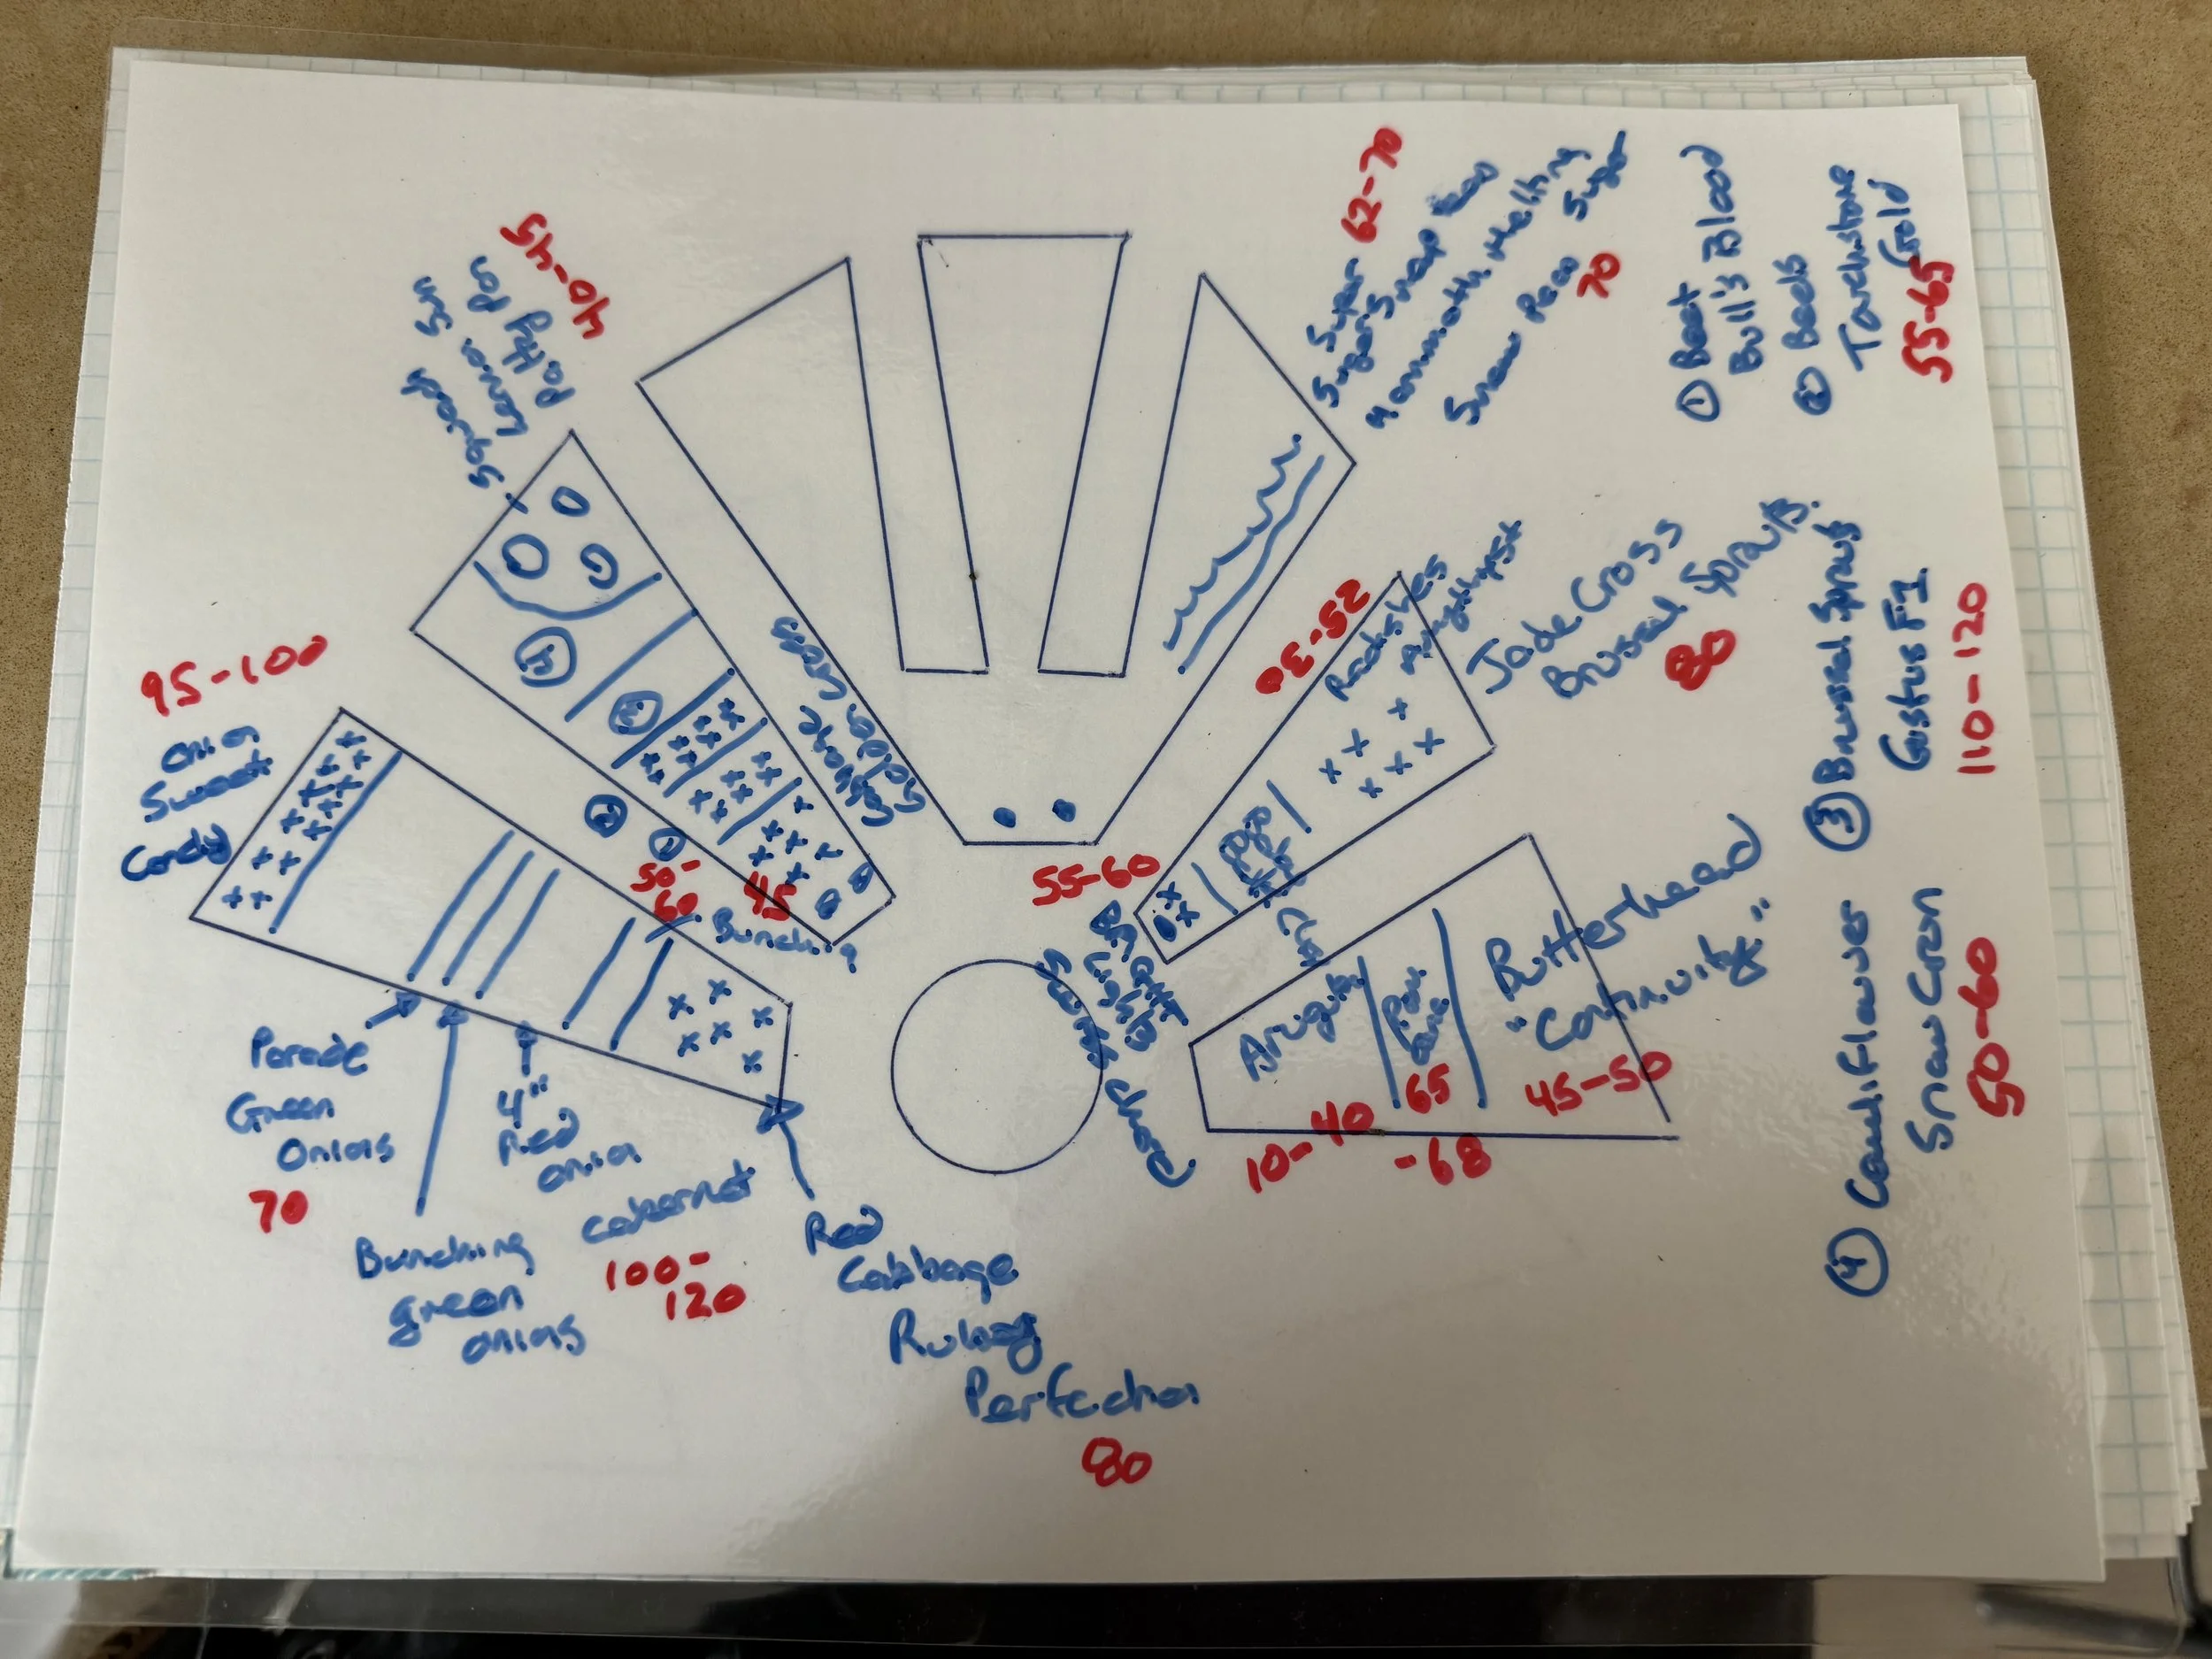 95-100
Onion
Sweet
Candy
Parade
Green
Onions
70
Bunching
green
onions
4"
Red
onion
cabernet
100-
120
Red
Cabbage
Ruby
Perfection
80
40-45
Squash
Lemon Sun
Patty Pan
4
3
2
1
50-
60
45
Bunching
Cabbage
Golden Cross
62-70
Super
Sugar Snap Pea
Mammoth Melting
Snow Pea Sugar
70
25-30
Radishes
Amethyst
Jade Cross
Brussel Sprouts
80
55-60
Bright
Lights
Swiss Chard
Arugula
10-40
65
-68
Butterhead
"Continuity"
45-50
① Beet
Bull's Blood
② Beets
Touchstone
Gold
55-65
③ Brussel Sprouts
Gustus F1
110-120
④ Cauliflower
Snow Crown
50-60